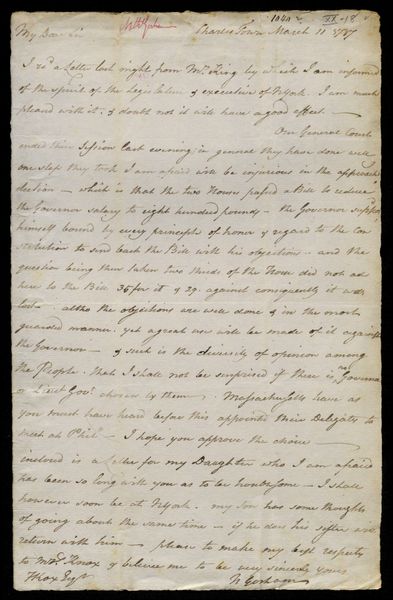 1040 XX-18
Charles Town March 11 1787
My Dear Sir
I recd a Letter last night from Mr. King by which I am informed
of the spirit of the Legislature & executive of NYork. I am much
pleased with it, & doubt not it will have a good effect —
Our General Court
ended their session last evening in general they have done well
one step they took I am afraid will be injurious in the approachg
election — which is that the two Houses passed a Bill to reduce
the Governor salary to eight hundred pounds — the Governor supposd
himself bound by every principle of honor & regard to the Con
stitution to send back the Bill with his objections — and the
question being then taken two thirds of the House did not ad
here to the Bill 35 for it & 29 against consequently it was
lost — altho the objections are well done & in the most
guarded manner, yet a great use will be made of it against
the Governor — & such is the diversity of opinion among
the People that I shall not be surprised if there is no Governor
or Lieut Govr. chosen by them. Massachusetts have as
you must have heard before this appointed their Delegates to
meet at Phila — I hope you approve the choice
inclosed is a Letter for my Daughter who I am afraid
has been so long with you as to be troublesome — I shall
however soon be at NYork. my son has some thoughts
of going about the same time — if he does his sister will
return with him — please to make my best respects
to Mrs. Knox & believe me to be very sincerely yours
N Gorham
H Knox Esqr